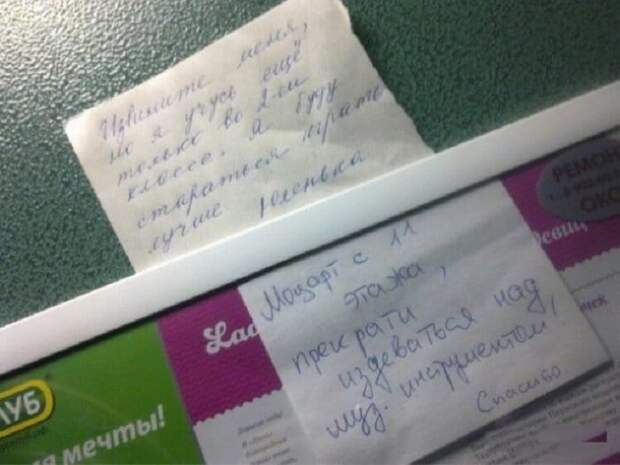 Извините меня,
но я учусь ещё
только во 2-ом
классе, а буду
стараться играть
лучше Юленька
Моцарт с 11
этажа,
прекрати
издеваться над
муз. инструментом,
Спасибо
РЕМОН
ОКО
Lad
УБ
я мечты!